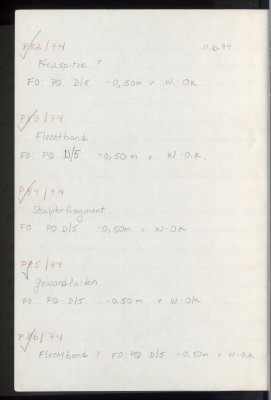 P82/74 11.6.74
Pfeilspitze ?
FO: PQ D/5 -0,50m v W-OK
P83/74
Flechtband
FO: PQ D/5 -0,50m v W-OK
P84/74
Skulpturfragment
FO: PQ D/5 -0,50m v W-OK
P85/74
Gewandfalten
FO: PQ D/5 -0.50m v W-OK
P86/74
Flechtband ? FO: PQ D/5 -0,50m v W-OK.